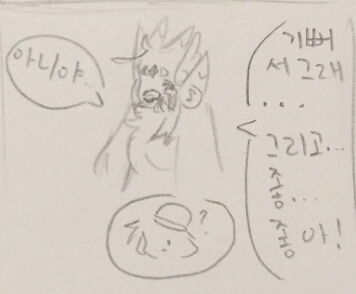 아니야
기뻐
서 그래
...
그리고...
정...
정아!
?